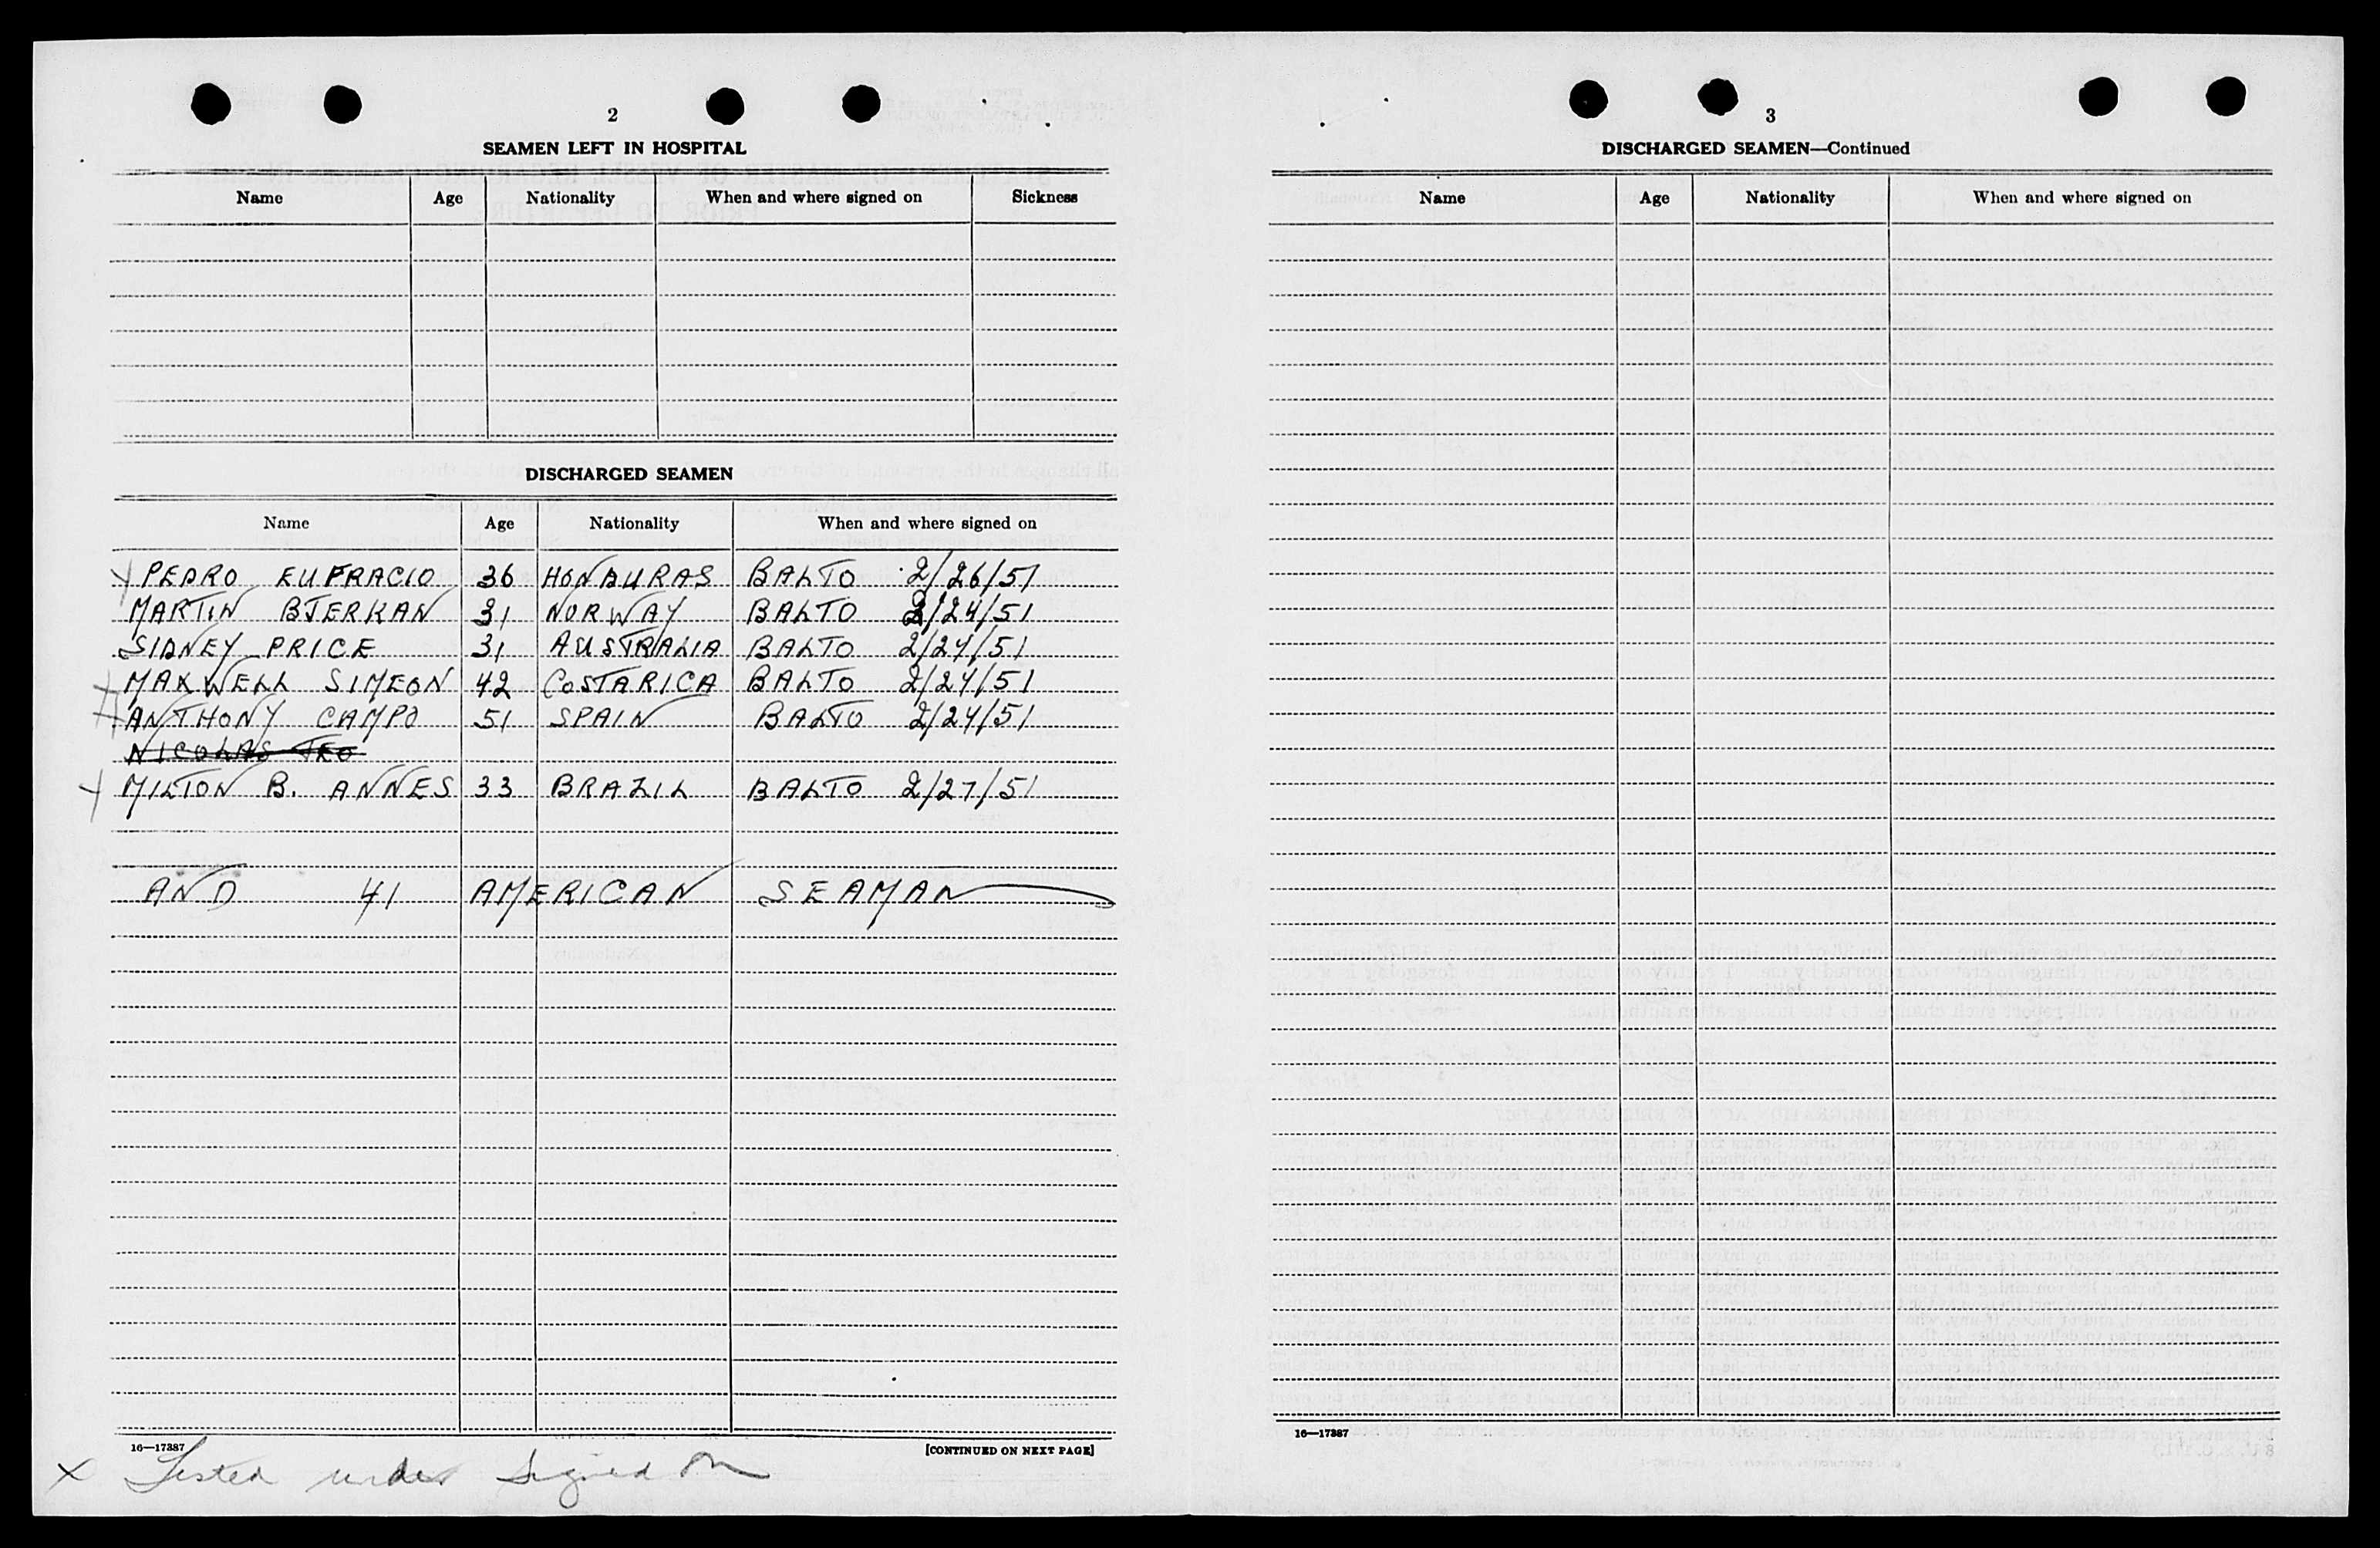 2
SEAMEN LEFT IN HOSPITAL
Name Age Nationality When and where signed on Sickness
DISCHARGED SEAMEN
Name Age Nationality When and where signed on
X PEDRO EUFRACIO 36 HONDURAS BALTO 2/26/51
MARTIN BJERKAN 31 NORWAY BALTO 2/24/51
SIDNEY PRICE 31 AUSTRALIA BALTO 2/24/51
X MAXWELL SIMEON 42 COSTARICA BALTO 2/24/51
X ANTHONY CAMPO 51 SPAIN BALTO 2/24/51
NICOLAS TEO
X MILTON B. ANNES 33 BRAZIL BALTO 2/27/51
AND 41 AMERICAN SEAMAN
16—17387
[CONTINUED ON NEXT PAGE]
X Listed under Signed On
3
DISCHARGED SEAMEN—Continued
Name Age Nationality When and where signed on
16—17387